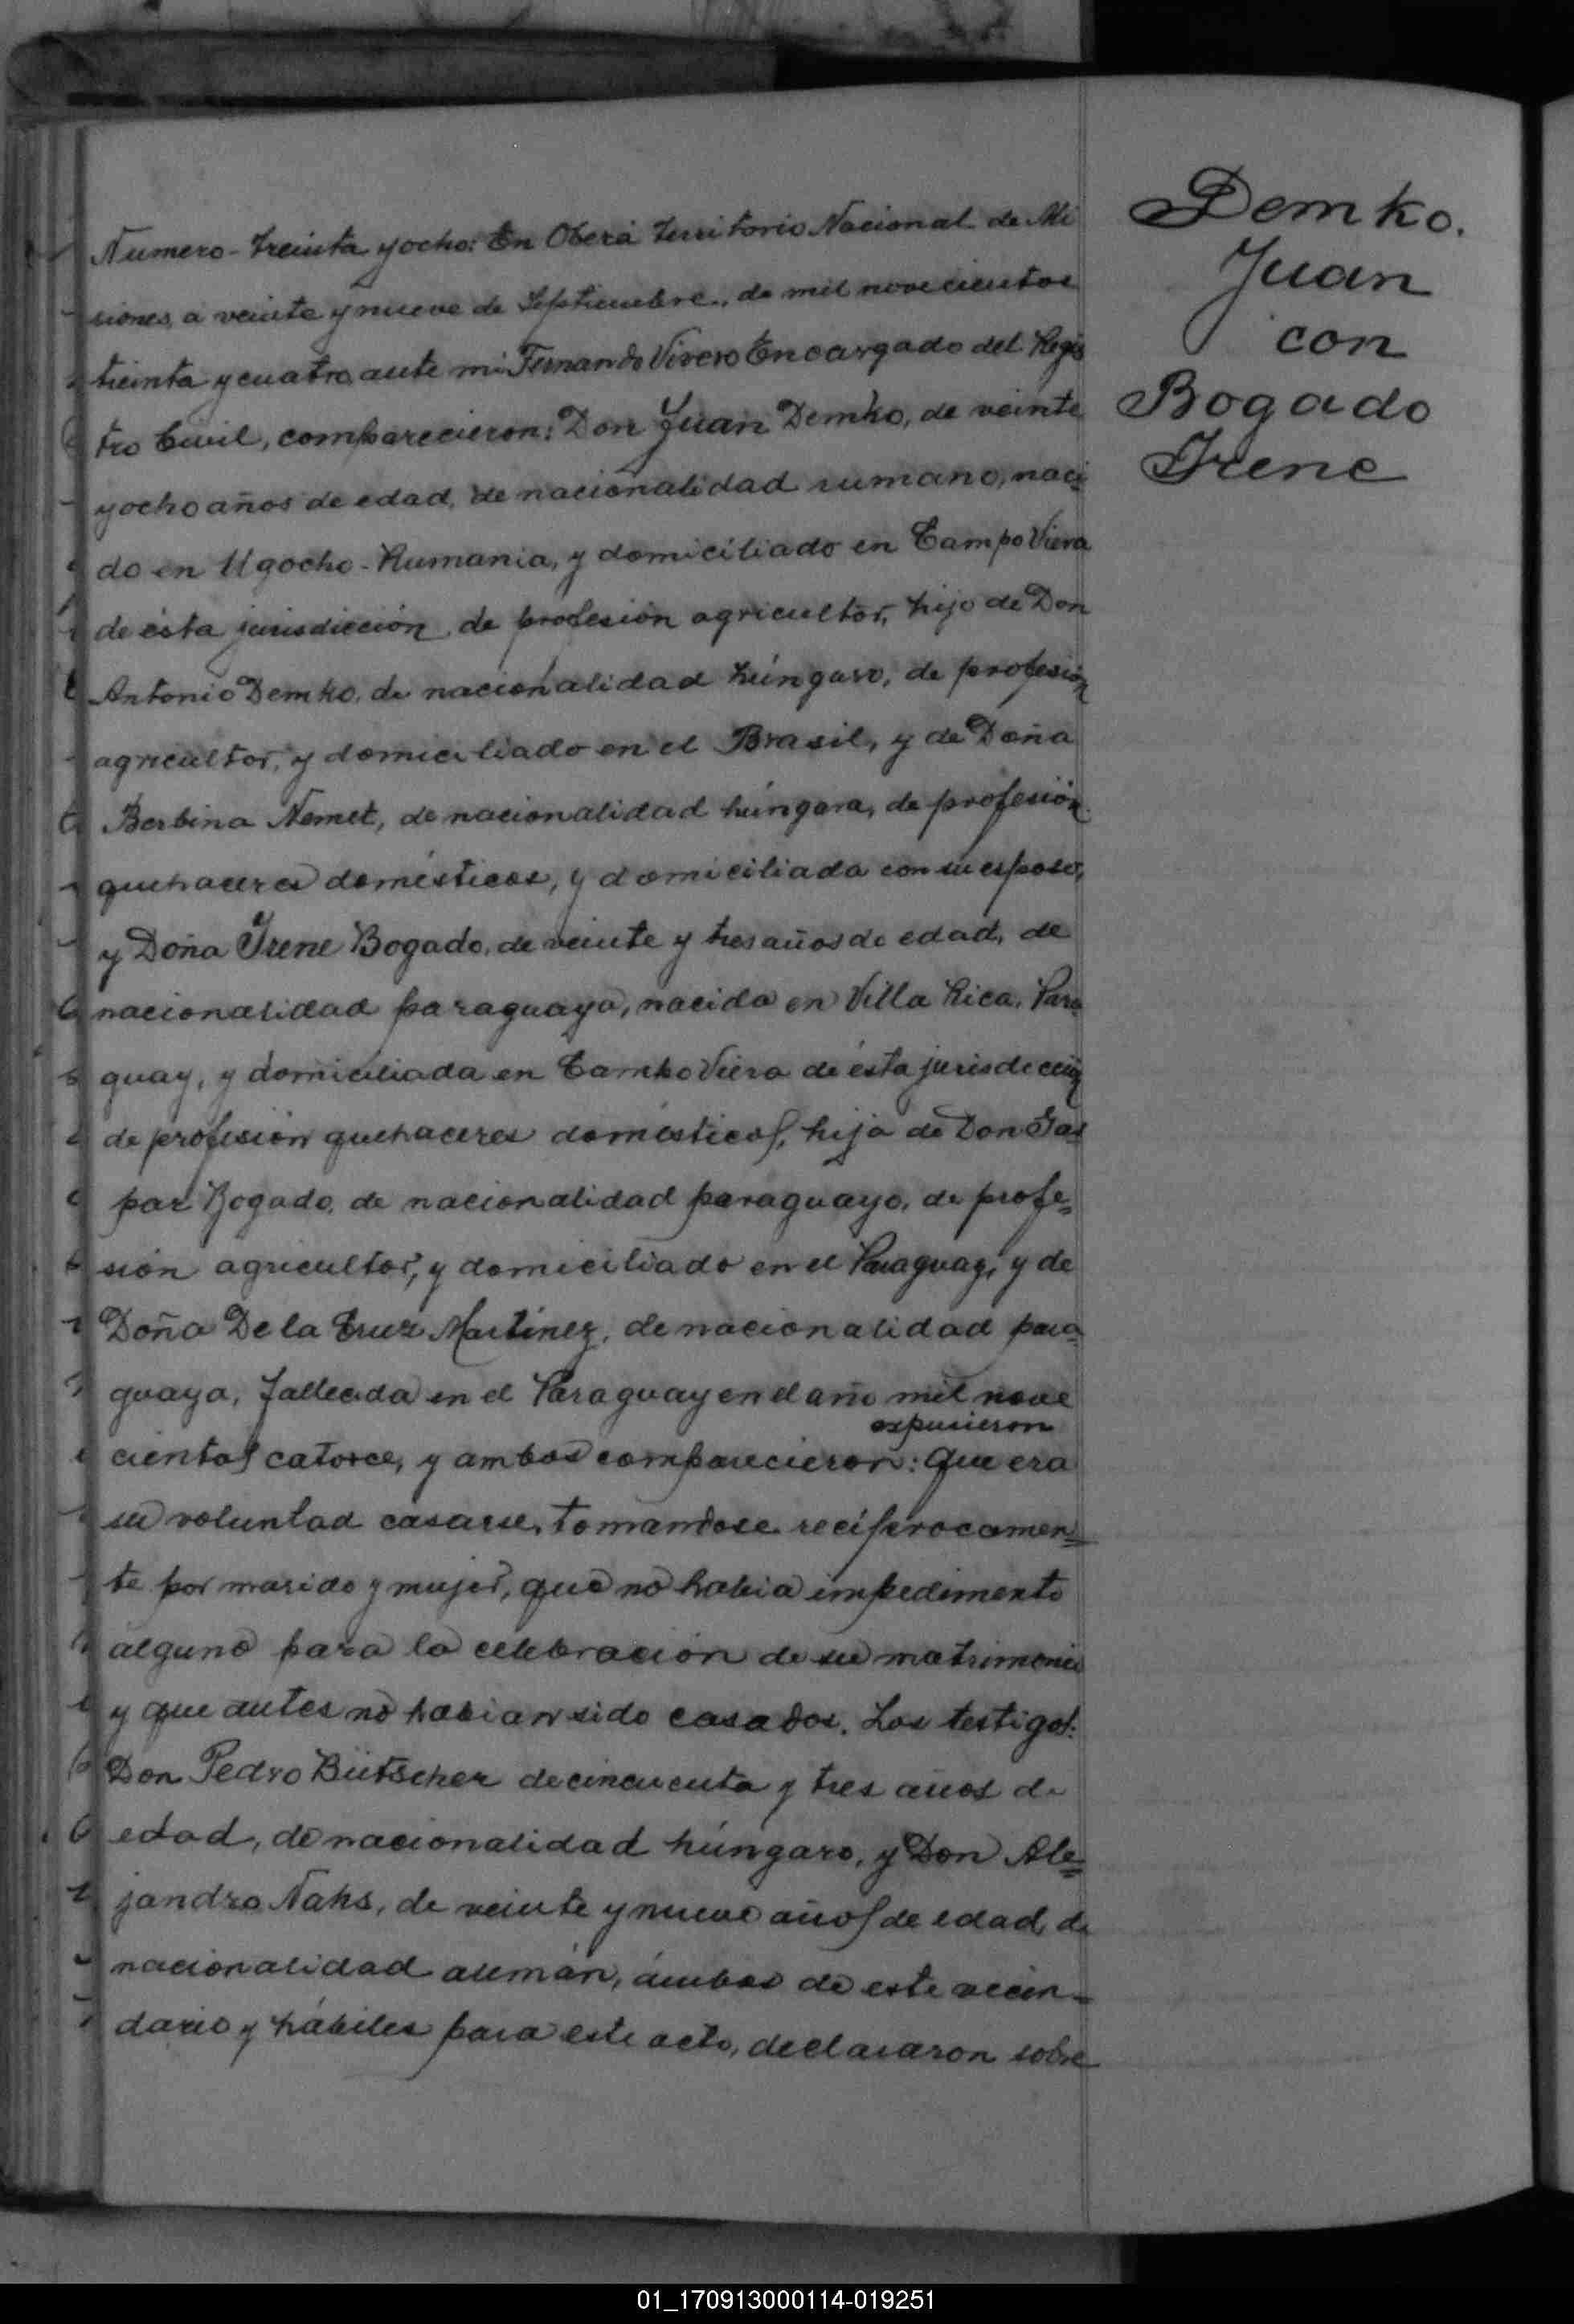 Numero - treinta y ocho: En Oberá Territorio Nacional de Mi
siones, a veinte y nueve de Septiembre, de mil novecientos
treinta y cuatro, ante mi Fernando Vivero Encargado del Regis
tro Civil, comparecieron: Don Juan Demko, de veinte
y ocho años de edad, de nacionalidad rumano, naci
do en Ugocho - Rumania, y domiciliado en Campo Viera
de ésta jurisdicción, de profesión agricultor, hijo de Don
Antonio Demko, de nacionalidad húngaro, de profesión
agricultor, y domiciliado en el Brasil, y de Doña
Berbina Nemet, de nacionalidad húngara, de profesión
quehaceres domésticos, y domiciliada con su esposo,
y Doña Irene Bogado, de veinte y tres años de edad, de
nacionalidad paraguaya, nacida en Villa Rica, Para
guay, y domiciliada en Campo Viera de ésta jurisdicción
de profesión quehaceres domésticos, hija de Don Gas
par Bogado, de nacionalidad paraguayo, de profe=
sión agricultor, y domiciliado en el Paraguay, y de
Doña De la Cruz Martínez, de nacionalidad para=
guaya, fallecida en el Paraguay en el año mil nove
expusieron
cientos catorce, y ambos comparecieron: Que era
su voluntad casarse, tomandose recíprocamen=
te por marido y mujer, que no habia impedimento
alguno para la celebración de su matrimonio
y que antes no habian sido casados. Los testigos:
Don Pedro Bütscher de cincuenta y tres años de
edad, de nacionalidad húngaro, y Don Ale=
jandro Nahs, de veinte y nueve años de edad, de
nacionalidad alemán, ámbos de este vecin=
dario y hábiles para este acto, declararon sobre
Demko.
Juan
con
Bogado
Irene
01_170913000114-019251